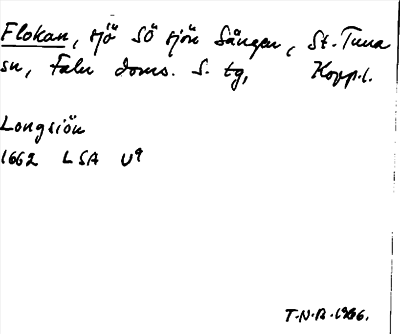 Flokan, sjö SÖ sjön Sången, St. Tuna
sn, Falu doms. S. tg, Kopp.l.
Longsiön
1662 LSA U9
T.N.B. 1966.